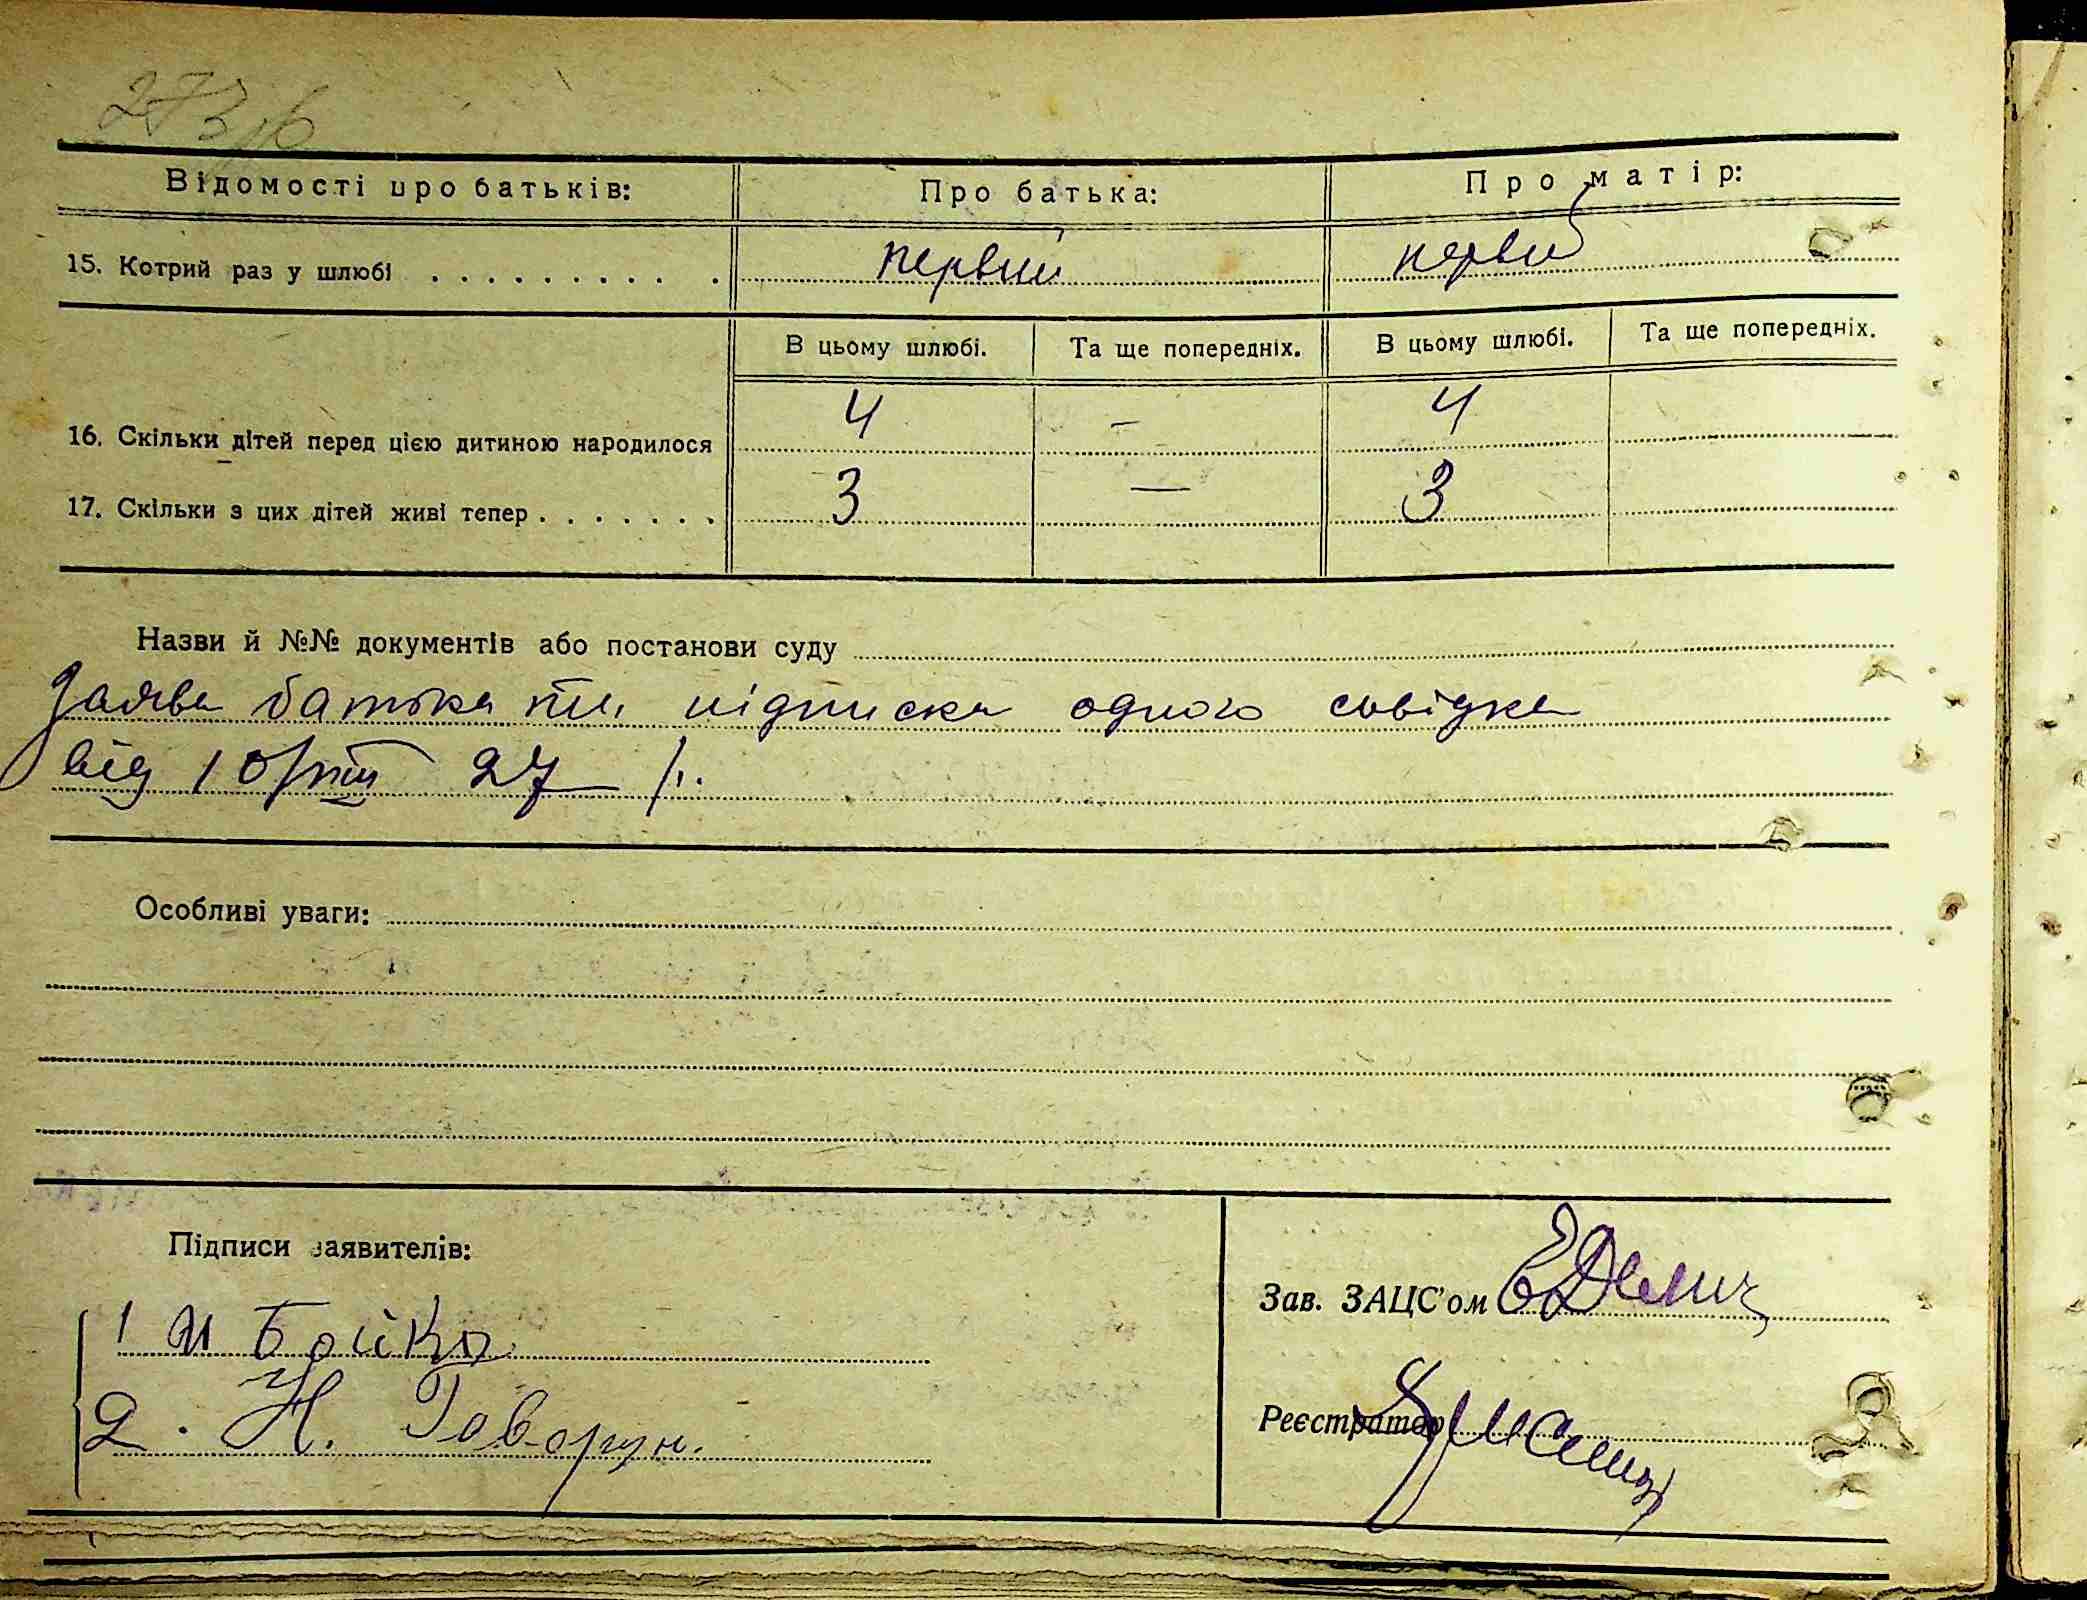 273
Відомості про батьків: Про батька: Про матір:
15. Котрий раз у шлюбі . . . . . . . . . . первий первий
В цьому шлюбі. Та ще попередніх. В цьому шлюбі. Та ще попередніх.
16. Скільки дітей перед цією дитиною народилося 4 – 4
17. Скільки з цих дітей живі тепер . . . . . . . 3 — 3
Назви й №№ документів або постанови суду
Заява батька та підписка одного свідка
від 10/VIII 27 р.
Особливі уваги:
Підписи заявителів:
Зав. ЗАЦС'ом
1 И Бойко
Реєстратор
2. Н. Говорун.